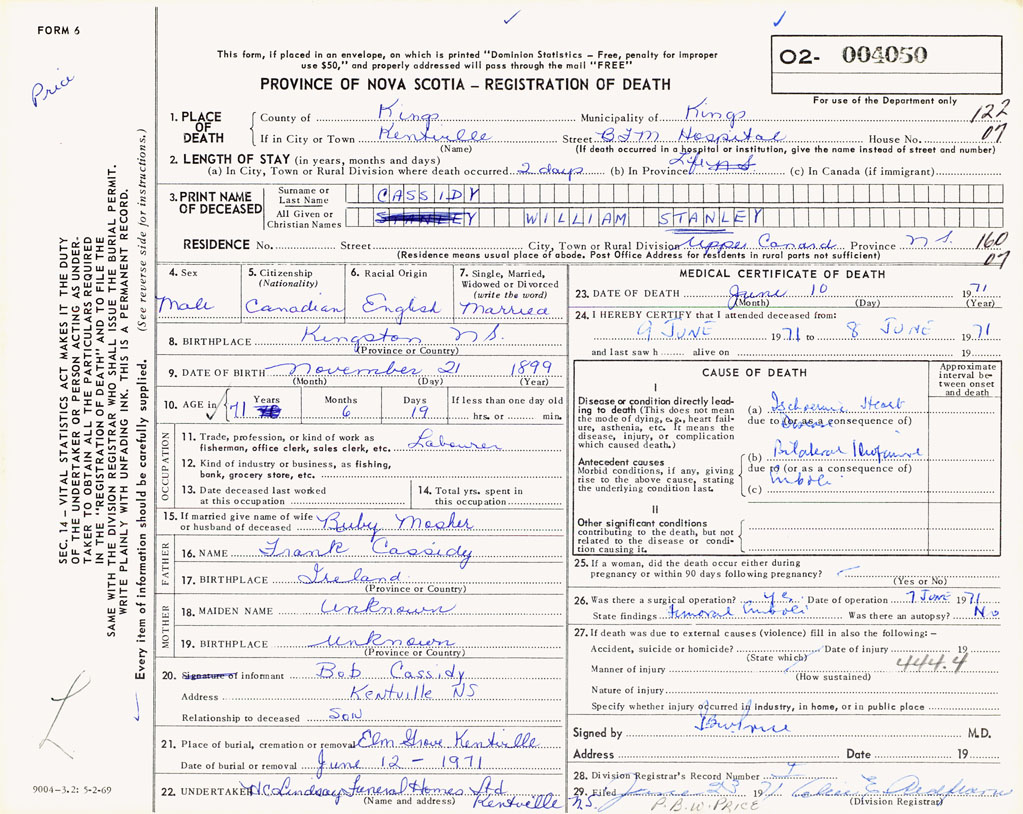 FORM 6
This form, if placed in an envelope, on which is printed "Dominion Statistics – Free, penalty for improper
use $50," and properly addressed will pass through the mail "FREE"
PROVINCE OF NOVA SCOTIA – REGISTRATION OF DEATH
02- 004050
For use of the Department only
Price
SEC. 14 – VITAL STATISTICS ACT MAKES IT THE DUTY
OF THE UNDERTAKER OR PERSON ACTING AS UNDER-
TAKER TO OBTAIN ALL THE PARTICULARS REQUIRED
IN THE "REGISTRATION OF DEATH" AND TO FILE THE
SAME WITH THE DIVISION REGISTRAR WHO SHALL ISSUE THE BURIAL PERMIT.
WRITE PLAINLY WITH UNFADING INK. THIS IS A PERMANENT RECORD.
Every item of information should be carefully supplied. (See reverse side for instructions.)
1. PLACE OF DEATH
County of Kings Municipality of Kings 122
If in City or Town Kentville Street B.F.M. Hospital House No. 07
(Name) (If death occurred in a hospital or institution, give the name instead of street and number)
2. LENGTH OF STAY (in years, months and days) Life
(a) In City, Town or Rural Division where death occurred 2 days (b) In Province NS (c) In Canada (if immigrant)
3. PRINT NAME OF DECEASED
Surname or Last Name CASSIDY
All Given or Christian Names STANLEY WILLIAM STANLEY
RESIDENCE No. Street City, Town or Rural Division Upper Canard Province N S. 160
(Residence means usual place of abode. Post Office Address for residents in rural parts not sufficient) 07
4. Sex Male
5. Citizenship (Nationality) Canadian
6. Racial Origin English
7. Single, Married, Widowed or Divorced (write the word) Married
8. BIRTHPLACE Kingston N S.
(Province or Country)
9. DATE OF BIRTH November 21 1899
(Month) (Day) (Year)
10. AGE in Years 71 Months 6 Days 19 If less than one day old hrs. or min.
OCCUPATION
11. Trade, profession, or kind of work as fisherman, office clerk, sales clerk, etc. Labourer
12. Kind of industry or business, as fishing, bank, grocery store, etc.
13. Date deceased last worked at this occupation
14. Total yrs. spent in this occupation
15. If married give name of wife or husband of deceased Ruby Mosher
FATHER
16. NAME Frank Cassidy
17. BIRTHPLACE Ireland
(Province or Country)
MOTHER
18. MAIDEN NAME Unknown
19. BIRTHPLACE Unknown
(Province or Country)
20. Signature of informant Bob Cassidy
Address Kentville NS
Relationship to deceased Son
21. Place of burial, cremation or removal Elm Grove Kentville
Date of burial or removal June 12 – 1971
22. UNDERTAKER H.C. Lindsay Funeral Homes Ltd
(Name and address) Kentville N.S.
9004-3.2: 5-2-69
MEDICAL CERTIFICATE OF DEATH
23. DATE OF DEATH June 10 1971
(Month) (Day) (Year)
24. I HEREBY CERTIFY that I attended deceased from:
9 JUNE 1971 to 8 JUNE 1971
and last saw h alive on 19
CAUSE OF DEATH
Approximate interval between onset and death
I
Disease or condition directly lead-
ing to death (This does not mean
the mode of dying, e.g., heart fail-
ure, asthenia, etc. It means the
disease, injury, or complication
which caused death.)
(a) Ischaemic Heart
due to (or as a consequence of)
Disease
Antecedent causes
Morbid conditions, if any, giving
rise to the above cause, stating
the underlying condition last.
(b) Bilateral
due to (or as a consequence of)
Emboli
(c)
II
Other significant conditions
contributing to the death, but not
related to the disease or condi-
tion causing it.
25. If a woman, did the death occur either during
pregnancy or within 90 days following pregnancy?
(Yes or No)
26. Was there a surgical operation? Yes Date of operation 7 June 1971
State findings Femoral Emboli Was there an autopsy? No
27. If death was due to external causes (violence) fill in also the following: –
Accident, suicide or homicide? Date of injury 19
(State which) 444.4
Manner of injury
(How sustained)
Nature of injury
Specify whether injury occurred in industry, in home, or in public place
Signed by M.D.
Address Date 19
28. Division Registrar's Record Number
29. Filed June 23 1971
P.B.W. PRICE (Division Registrar)